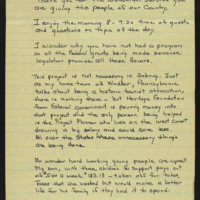 are giving the people of our County.
I enjoy the morning 8 - 9:30 time of guests
and questions on topic of the day.
I wonder why you have not had a program
on all the Federal grants being made because
legislator promise all these favors.
This project is not necessary in Salway. Just
as my home town of Windber, Pennsylvania
talks about being a historic tourist attraction,
there is nothing there - but Heritage Foundation
from Federal Government is pouring money into
that project and the only person being helped
is the Project Planner who lives on the West Coast
drawing a big salary and could care less.
All over the States these unnecessary things
are being done.
No wonder hard working young people are upset
My son, with three children to support pays out
of a week's
taken out for taxes.
Taxes that are wasted but would make a better
life for his family if they had it to spend.